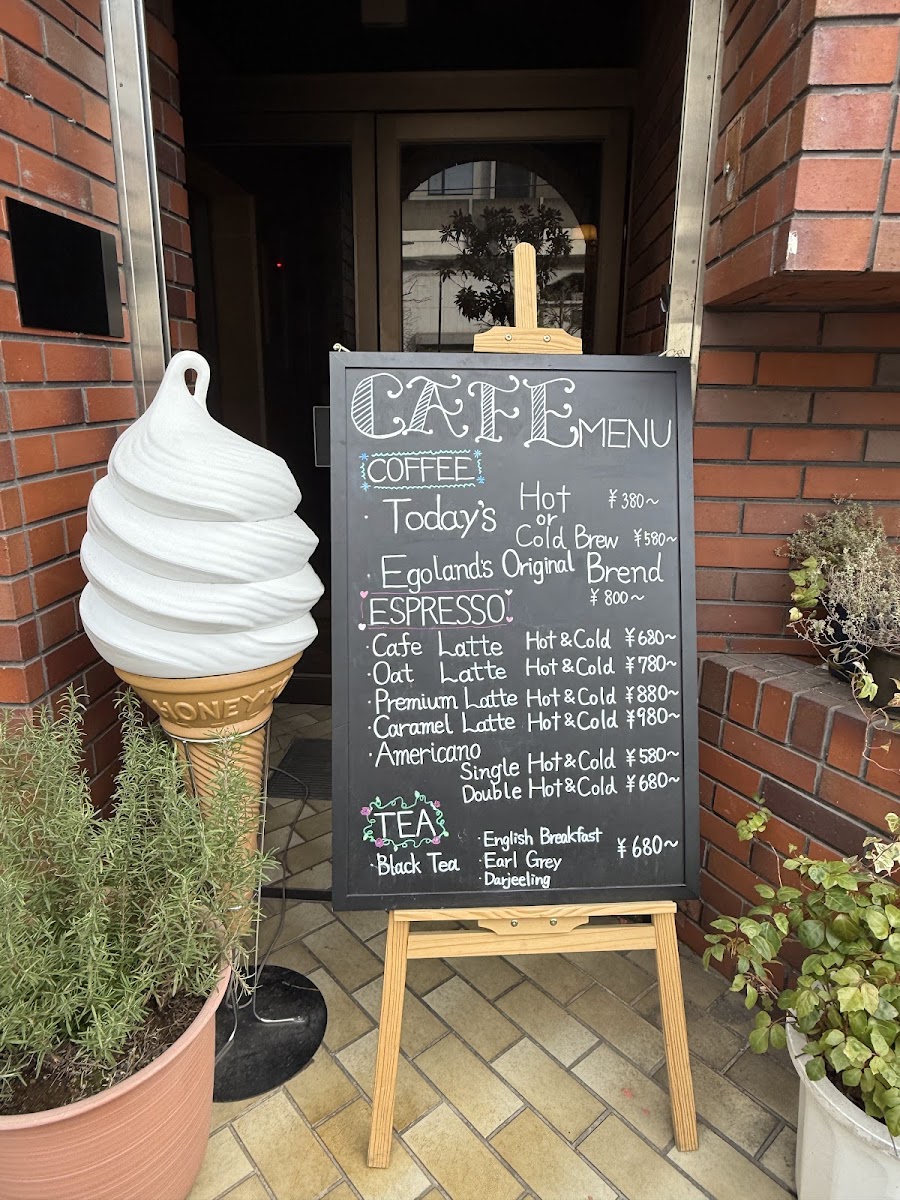 CAFE MENU
COFFEE
・Today's Hot ¥380~
or
Cold Brew ¥580~
・Egoland's Original Brend
¥800~
ESPRESSO
・Cafe Latte Hot&Cold ¥680~
・Oat Latte Hot&Cold ¥780~
・Premium Latte Hot&Cold ¥880~
・Caramel Latte Hot&Cold ¥980~
・Americano
Single Hot&Cold ¥580~
Double Hot&Cold ¥680~
TEA
・Black Tea
・English Breakfast
・Earl Grey
・Darjeeling
¥680~
HONEY